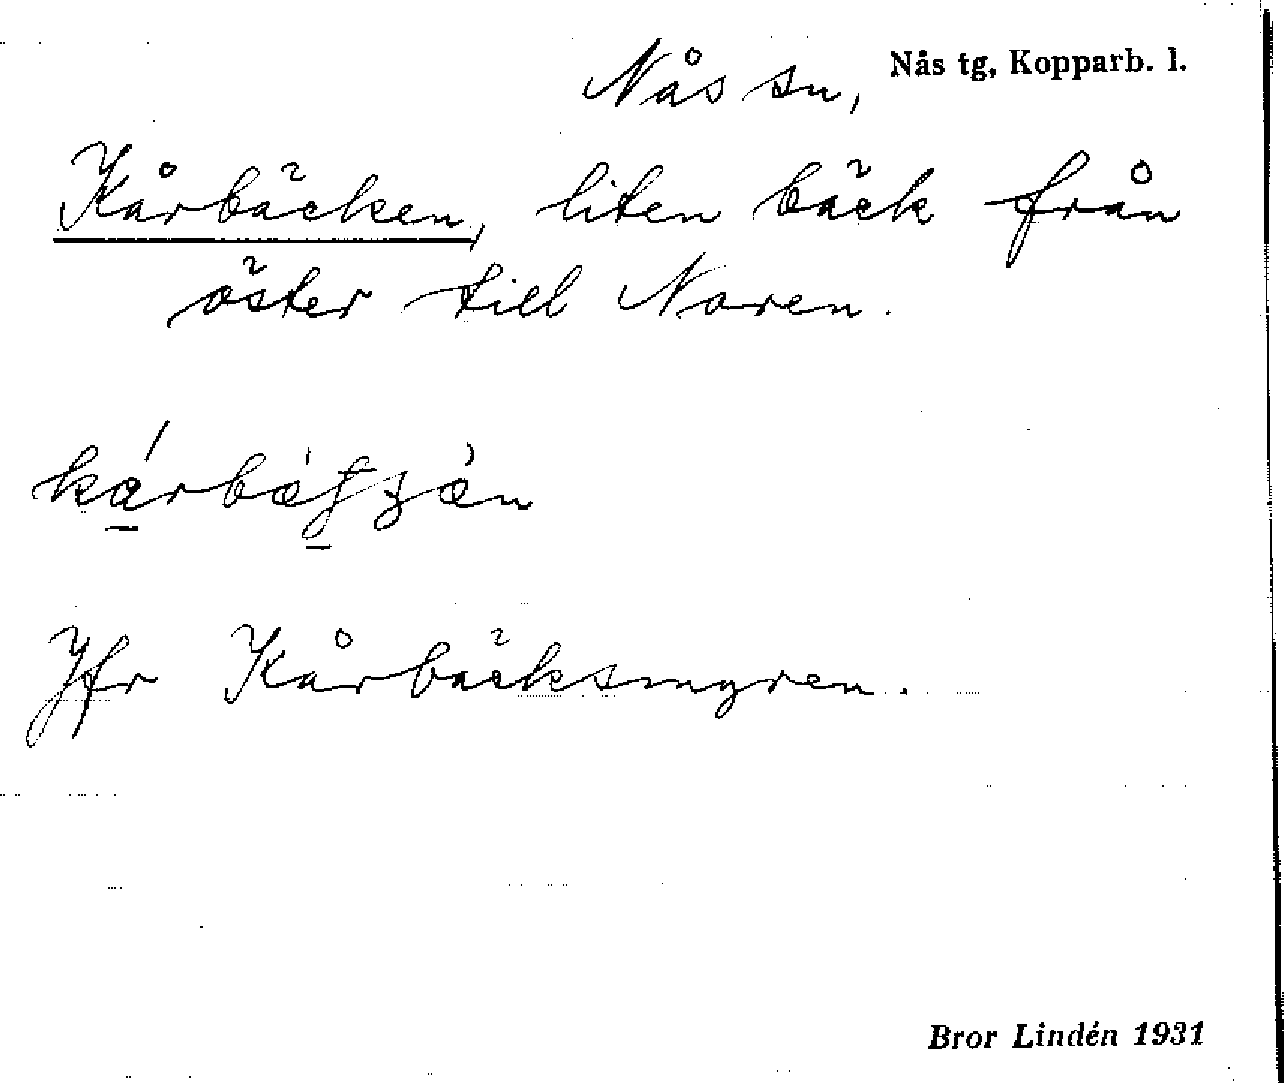 Nås sn, Nås tg, Kopparb. l.
Kårbäcken, liten bäck från
öster till Noren.
Jfr Kårbäcksmyren.
Bror Lindén 1931